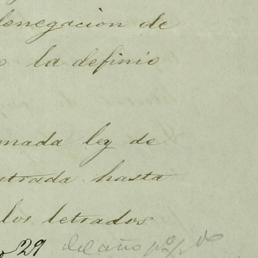 denegacion de
la definio
mada ley de
strada hasta
los letrados
29 del año